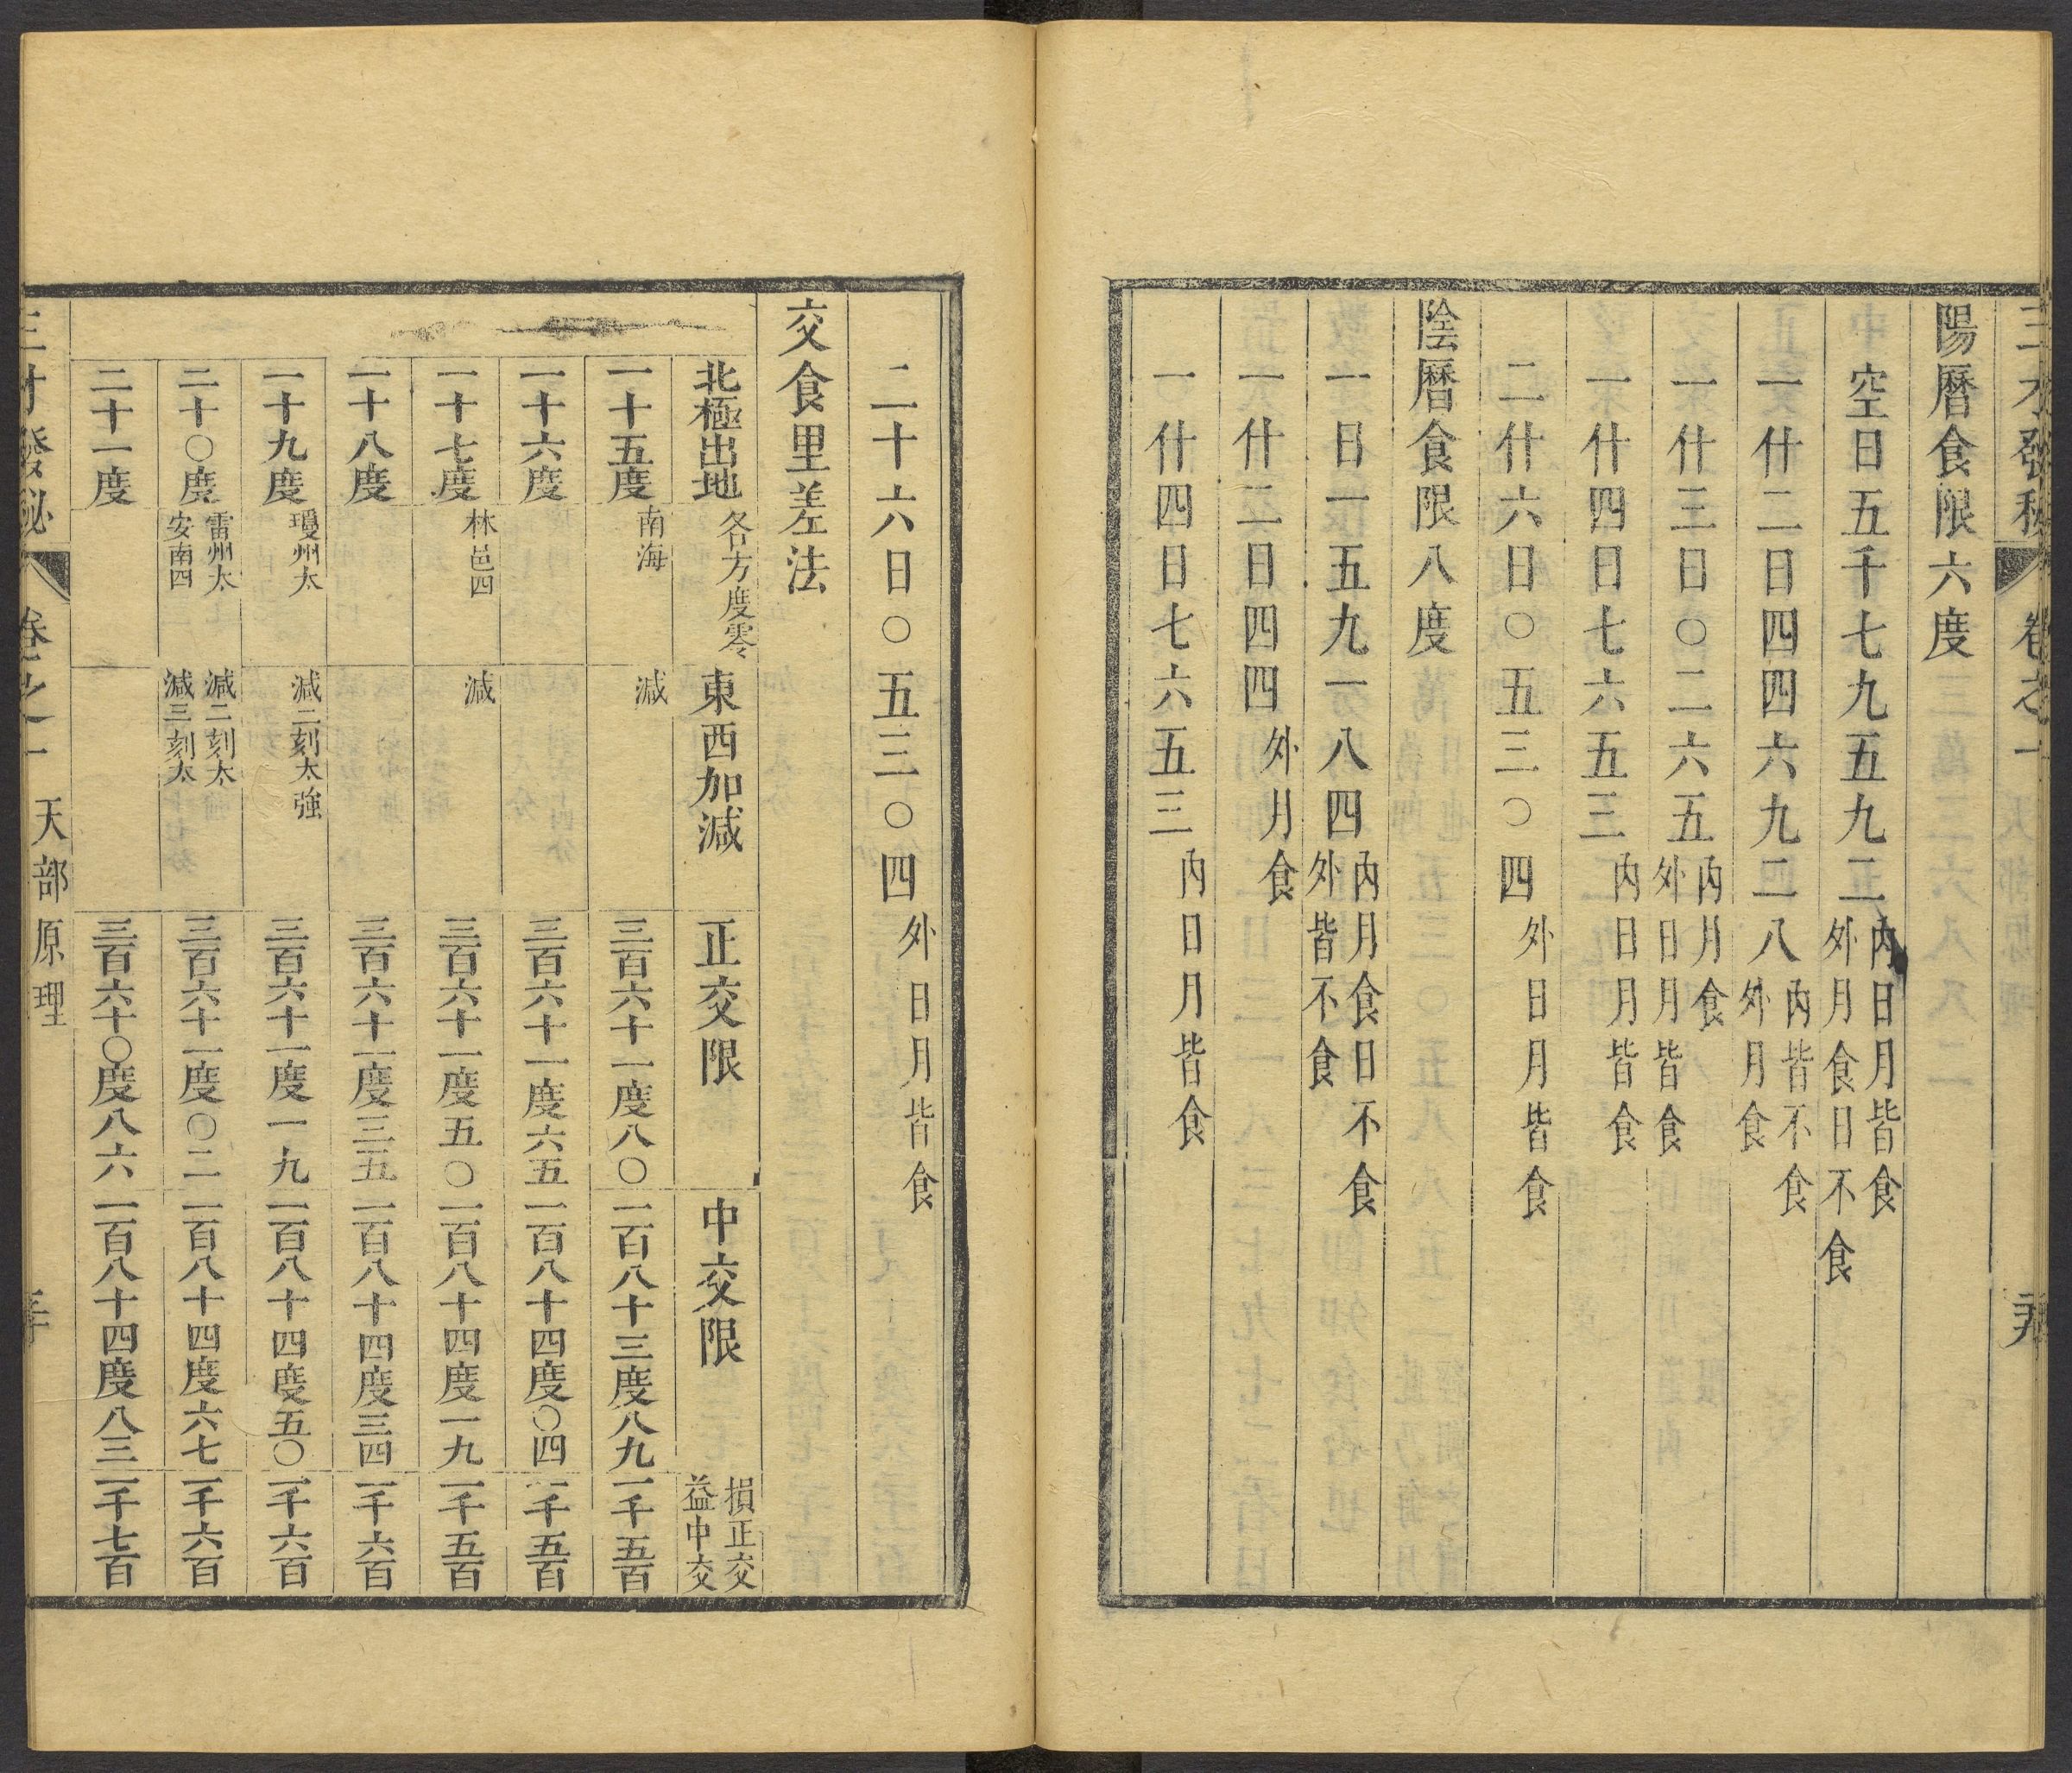 三才發秘 卷之一 天部原理
陽曆食限六度
空日五千七九五九二 內日月皆食 外月食日不食
一什二日四四六九二八 內皆不食 外月食
一什三日〇二六五 內月食 外日月皆食
一什四日七六五三 內日月皆食
二什六日〇五三〇四 外日月皆食
陰曆食限八度
一日一五九一八四 內月食日不食 外皆不食
一什二日四四四 外月食
一什四日七六五三 內日月皆食
二十六日〇五三〇四 外日月皆食
交食里差法
北極出地 各方度零 東西加減 正交限 中交限 損正交 益中交
一十五度 南海 減 三百六十一度八〇 一百八十三度八九 一千五百
一十六度 三百六十一度六五 一百八十四度〇四 一千五百
一十七度 林邑四 減 三百六十一度五〇 一百八十四度一九 一千五百
一十八度 三百六十一度三五 一百八十四度三四 一千六百
一十九度 瓊州太 減二刻太強 三百六十一度一九 一百八十四度五〇 一千六百
二十〇度 雷州太 安南四 減二刻太 減三刻太 三百六十一度〇二 一百八十四度六七 一千六百
二十一度 三百六十〇度八六 一百八十四度八三 一千七百
三才發秘 卷之一 天部原理